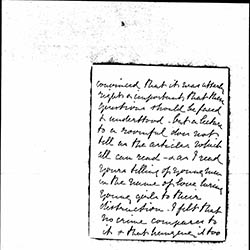 convinced that it was utterly
right & important, that these
questions should be faced
& understood - but a lecture
to a roomful does not
tell as the articles which
all can read - & as I read
yours telling of young men
in the name of love luring
young girls to their
destruction. I felt that
no crime compares to
it & that vengeance is too